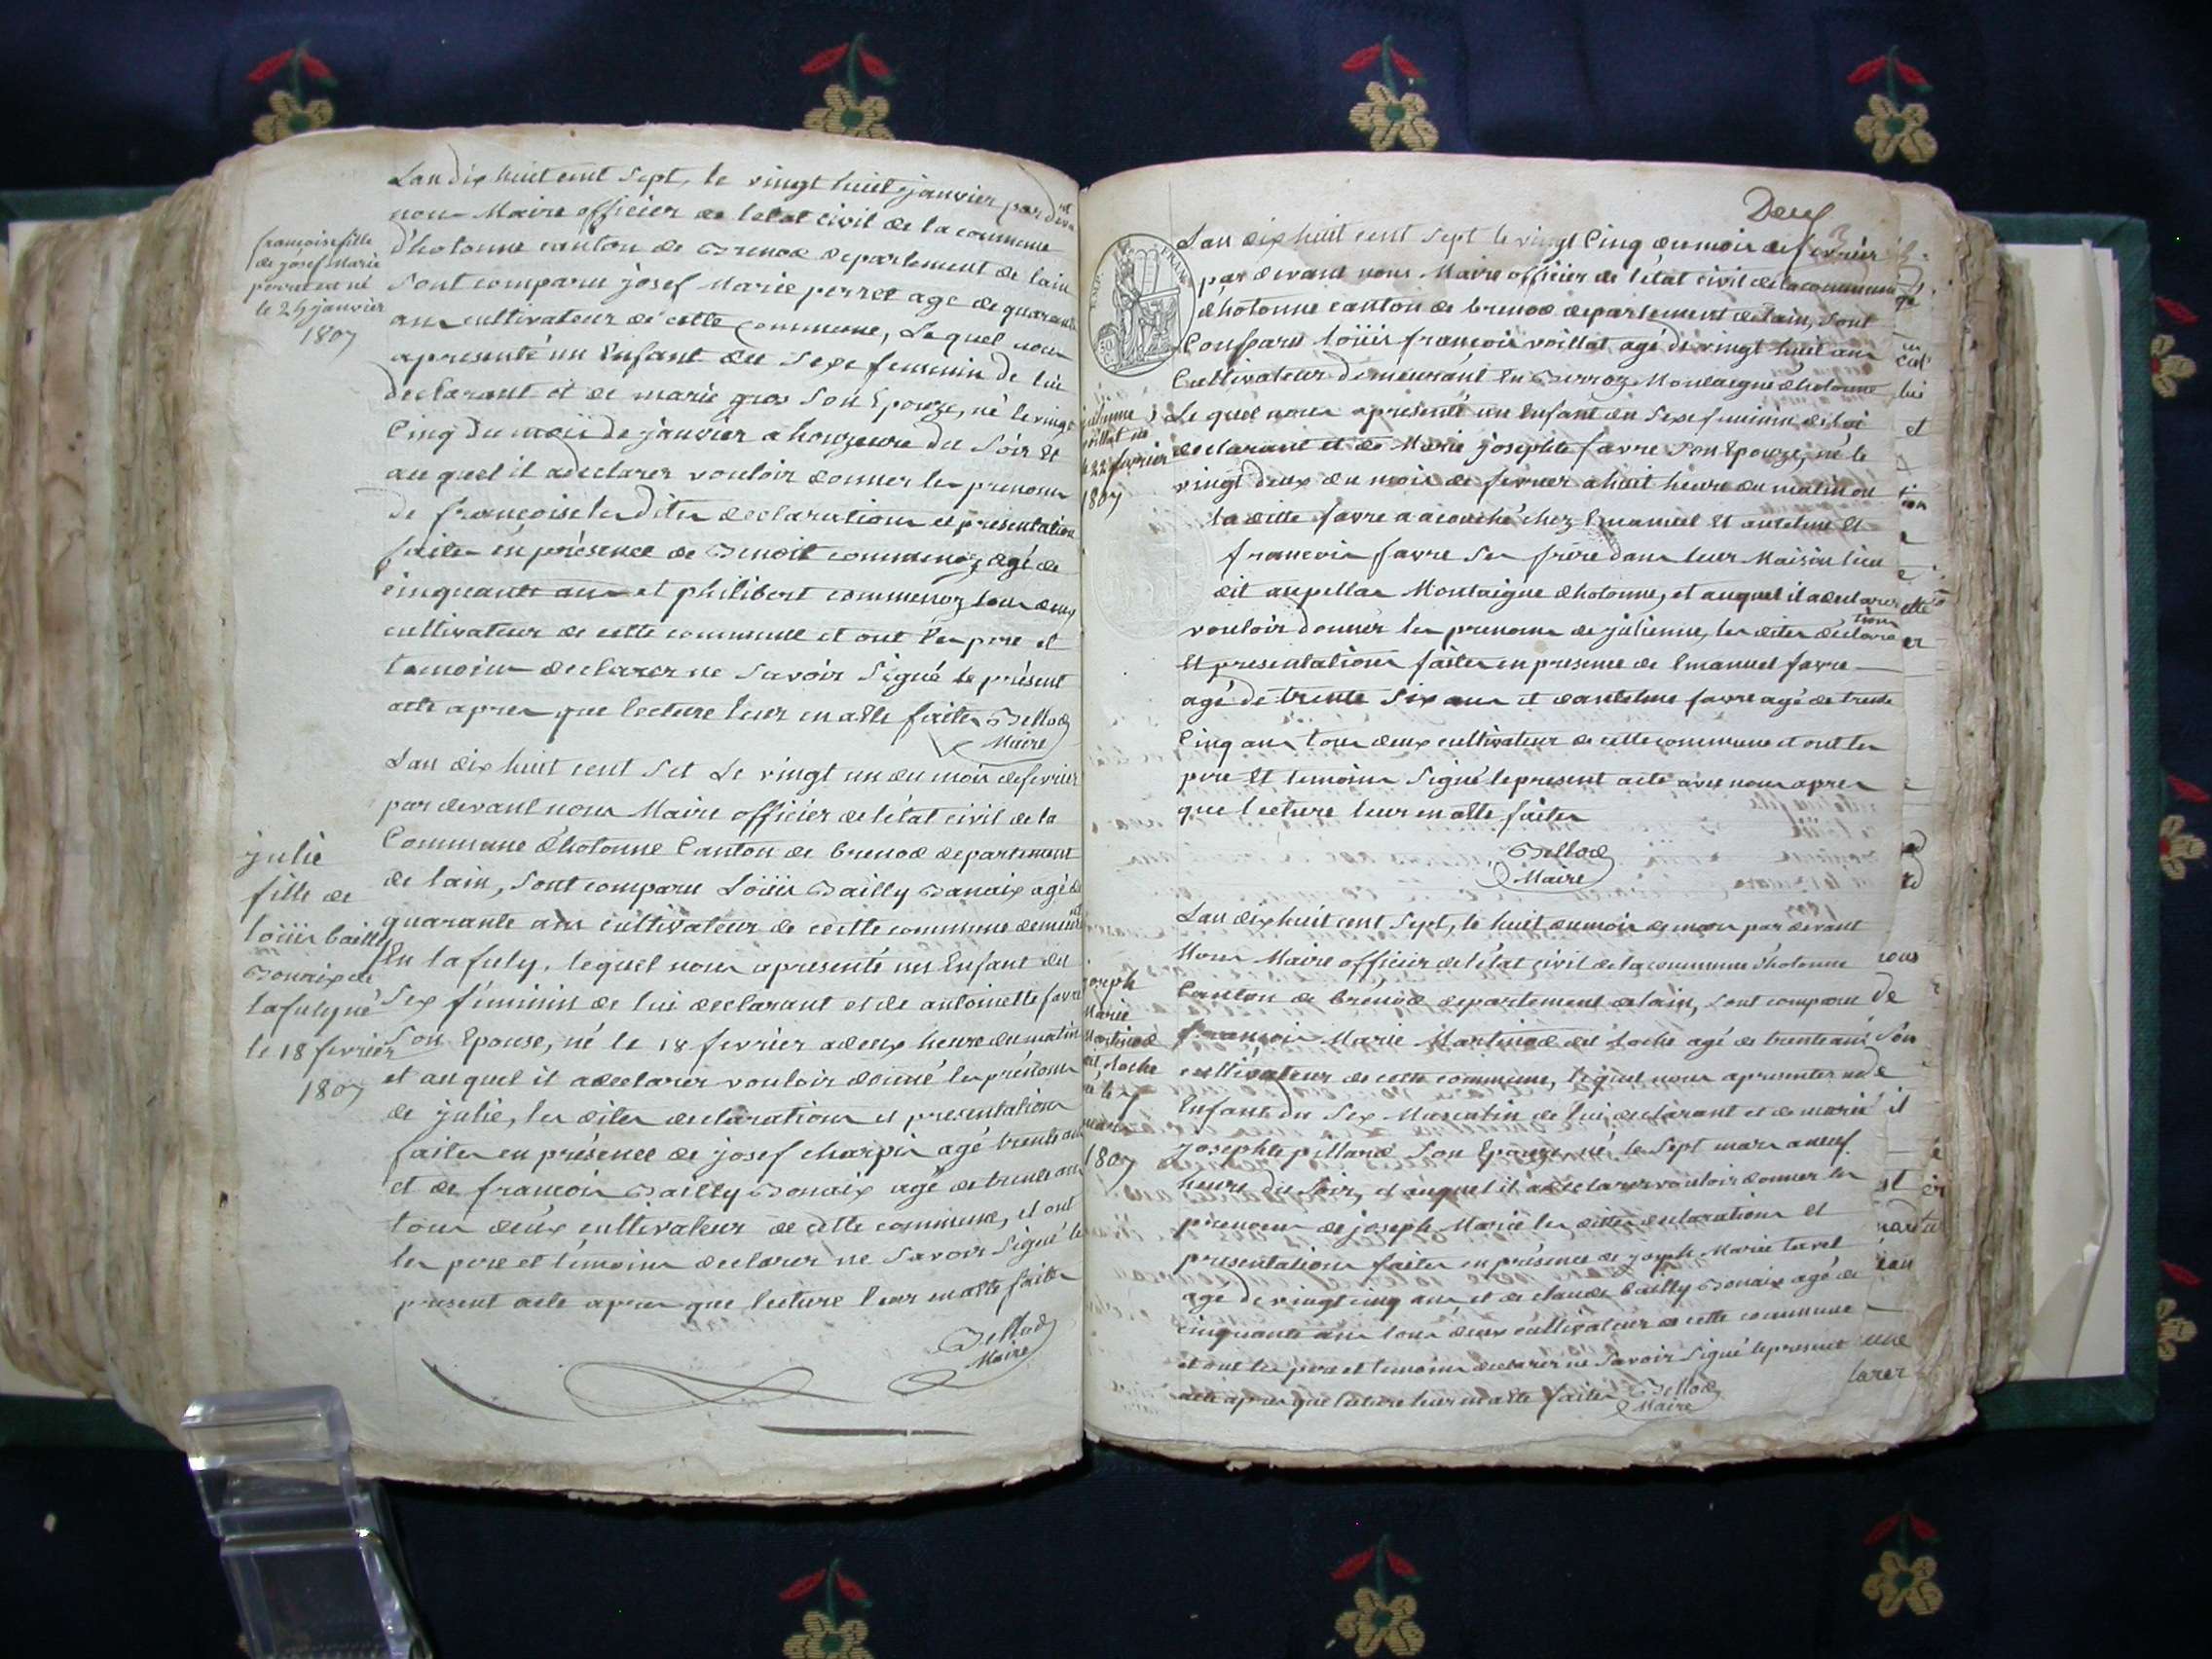 Lan dix huit cent sept, le vingt huit janvier par devant
nous Maire officier de letat civil de la commune
d'hotonne canton de Brenod departement de lain
sont comparu josef Marie perret age de quarante
ans cultivateur de cette commune, Lequel nous
apresenté un Enfant du Sexe feminin de lui
declarant et de marie gros Son Epouze, né le vingt
Cinq du mois de janvier a honze heure du Soir Et
au quel il adeclarer vouloir donner les prenoms
de françoise les dites declarations et presentation
faites en présence de Benoit commenoz agé de
cinquante ans et philibert commenoz tous deux
cultivateur de cette commune et ont les pere et
temoins declarer ne Savoir Signé le présent
acte apres que lecture leur en a Été faites Bellod
Maire
françoise fille
de josef Marie
perret est né
le 25 janvier
1807
Lan dix huit cent Set Le vingt un du mois defevrier
par devant nous Maire officier de l'état civil de la
Commune d'hotonne Canton de brenod departement
de lain, sont comparu Loüis Bailly Bonaix agé de
quarante ans cultivateur de cette commune
En lafuly, lequel nous apresenté un Enfant du
Sex féminin de lui declarant et de antoinette favre
Son Epouse, né le 18 fevrier a deux heure du matin
et au quel il adeclarer vouloir donné les prénoms
de julie, les dites declarations et presentations
faites en présence de josef charpin agé trente ans
et de françois Bailly Bonaix agé de trente ans
tous deux cultivateur de cette commune, et ont
les pere et témoins declarer ne Savoir Signé le
present acte apres que lecture leur en a Été faites
Bellod
Maire
julie
fille de
loüis bailly
Bonaix de
lafuly né
le 18 fevrier
1807
Deux
Lan dix huit cent sept le vingt Cinq du mois de fevrier
par devant nous Maire officier de l'état civil de la commune
d'hotonne canton de brenod departement de lain, sont
Comparu loüis françois voillat agé de vingt huit ans
Cultivateur demeurant En Montaigne d'hotonne
Le quel nous apresenté un Enfant du Sexe feminin de lui
declarant et de Marie josephte favre Son Epouze, né le
vingt deux du mois de fevrier a huit heure du matin ou
la ditte favre a acouché chez Emanuel Et antelme Et
francois favre Ses frère dans leur Maison lieu
dit appellas Montaigne dhotonne, et auquel il adeclarer
vouloir donner les prenoms de julienne, les dites declarations
Et presentations faites en presence de Emanuel favre
agé de trente Six ans et dantelme favre agé de trente
Cinq ans tous deux cultivateur de cette commune et ont les
pere Et temoins Signé le present acte avec nous apres
que lecture leur en a Été faites
Bellod
Maire
julienne
voillat né
le 22 fevrier
1807
Lan dix huit cent Sept, le huit du mois de mars par devant
Nous Maire officier de l'état civil de la commune d'hotonne
Canton de brenod departement de lain, sont comparu
françois Marie Martinod dit loche agé de trente ans
cultivateur de cette commune, lequel nous apresenter un
Enfant du Sex Masculin de lui declarant et de marie
josephte pillard Son Epouze né le Sept mars a neuf
heure du Soir, et auquel il adeclarer vouloir donner les
prenoms de joseph Marie les dittes declarations Et
presentations faites en présence de joseph Marie
agé de vingt cinq ans et de claude bailly Bonaix agé de
cinquante ans tous deux cultivateur de cette commune
et ont les pere et temoins declarer ne Savoir Signé le present
acte apres que lecture leur en a Été faites Bellod
Maire
joseph
Marie
Martinod
dit loche
né le 7
mars
1807